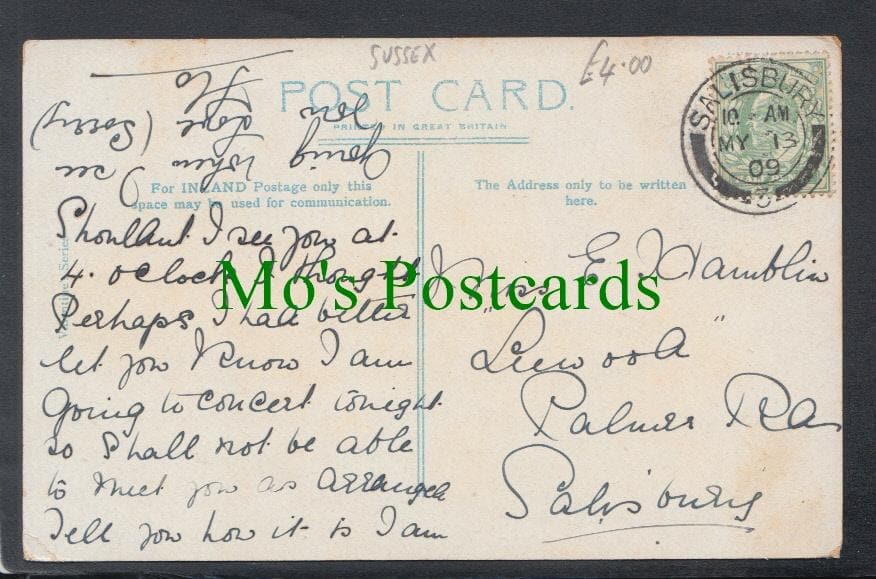 SUSSEX
£4.00
POST CARD.
PRINTED IN GREAT BRITAIN
For INLAND Postage only this
space may be used for communication.
The Address only to be written
here.
SALISBURY
10 - AM
MY 13
09
Valentine's Series
Shouldnt I see you at
4. oclock I thought
Perhaps I had better
let you know I am
going to concert tonight
so Shall not be able
to meet you as arranged
Tell you how it is I am
going when I see
you love (Sorry)
Flo
Miss E. Hamblin
Palmer Rd
Salisbury
Mo's Postcards